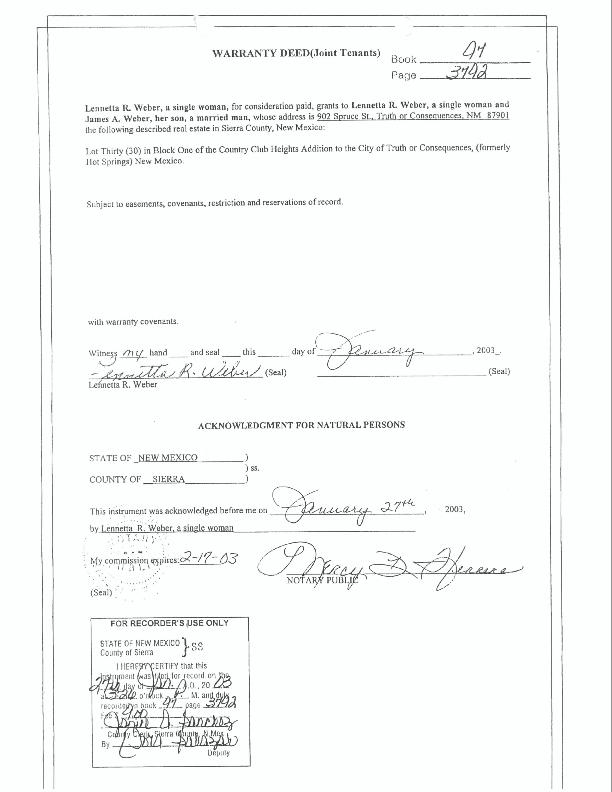 WARRANTY DEED(Joint Tenants)
Book 97
Page 3792
Lennetta R. Weber, a single woman, for consideration paid, grants to Lennetta R. Weber, a single woman and
James A. Weber, her son, a married man, whose address is 902 Spruce St., Truth or Consequences, NM 87901
the following described real estate in Sierra County, New Mexico:
Lot Thirty (30) in Block One of the Country Club Heights Addition to the City of Truth or Consequences, (formerly
Hot Springs) New Mexico.
Subject to easements, covenants, restriction and reservations of record.
with warranty covenants.
Witness my hand and seal this day of January, 2003.
Lennetta R. Weber (Seal) (Seal)
Lennetta R. Weber
ACKNOWLEDGMENT FOR NATURAL PERSONS
STATE OF NEW MEXICO )
) ss.
COUNTY OF SIERRA )
This instrument was acknowledged before me on January 27th, 2003,
by Lennetta R. Weber, a single woman
My commission expires: 2-17-03
Mercy D. Herrera
NOTARY PUBLIC
(Seal)
FOR RECORDER'S USE ONLY
STATE OF NEW MEXICO } SS
County of Sierra
I HEREBY CERTIFY that this
instrument was filed for record on the
27th day of Jan. A.D., 20 03
at 3:26 o'clock P. M. and duly
recorded in book 97 page 3792
Fee 9.00
Sanchez
County Clerk, Sierra County, N.Mex.
By
Deputy